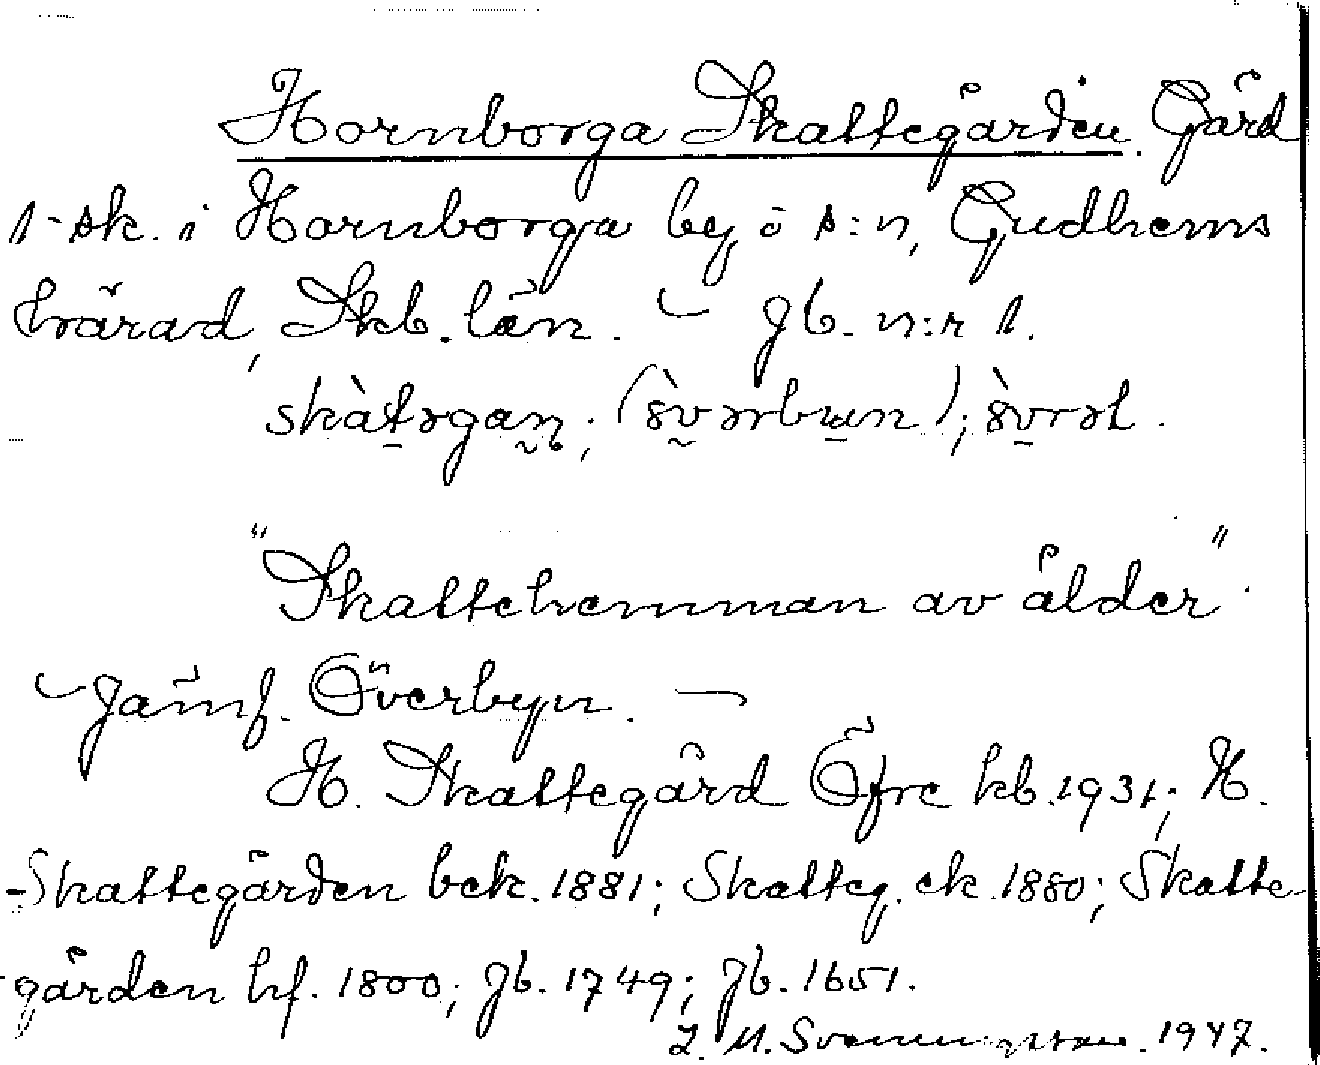 Hornborga Skattegården. Gård
1-sk. i Hornborga by o s:n, Gudhems
härad, Skb. län. – Jb. n:r 1.
skàtəgaṇ; (ö̀vərbyn); ö̀vrət.
"Skattehemman av ålder".
– Jämf. Överbyn. –
H. Skattegård Öfre kb. 1931; H.
-Skattegården bek. 1881; Skatteg. ek. 1880; Skatte
-gården hf. 1800; Jb. 1749; Jb. 1651.
1947.